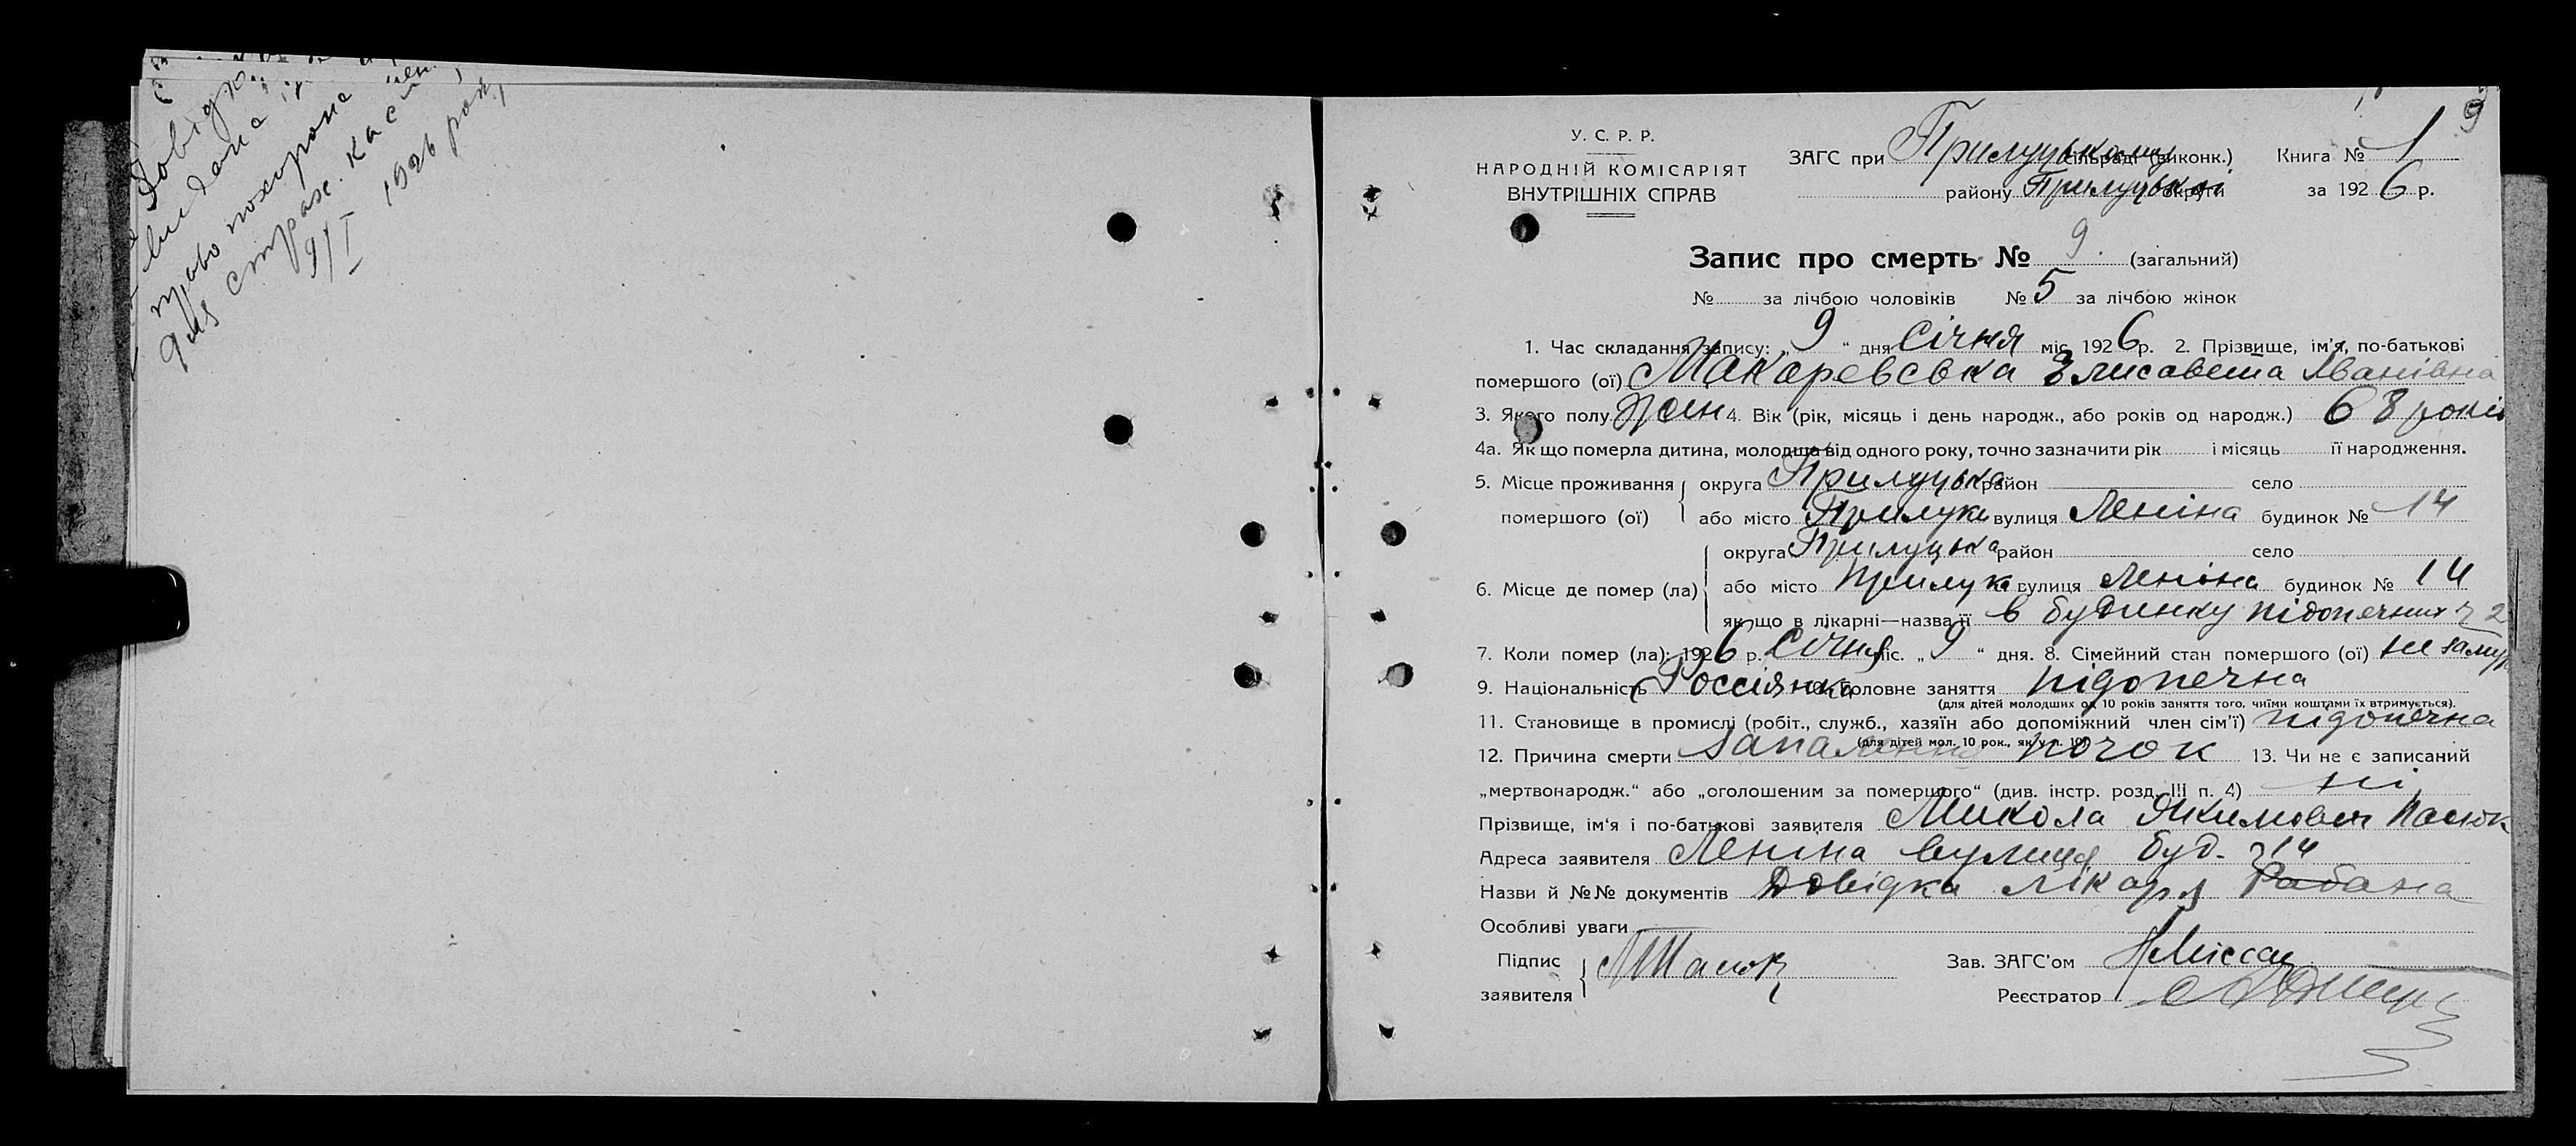 Довідка
видана
право похорона
для страх. каси
9/I 1926 року
9
У. С. Р. Р.
НАРОДНІЙ КОМІСАРІЯТ
ВНУТРІШНІХ СПРАВ
ЗАГС при Прилуцькому сільраді (виконк.) Книга № 1
району Прилуцької округи за 1926 р.
Запис про смерть № 9. (загальний)
№ за лічбою чоловіків № 5 за лічбою жінок
1. Час складання запису: „ 9 “ дня Січня міс. 1926 р. 2. Прізвище, ім'я, по-батькові
помершого (ої) Макаревська Елисавета Іванівна
3. Якого полу жін 4. Вік (рік, місяць і день народж., або років од народж.) 68 років
4а. Як що померла дитина, молодша від одного року, точно зазначити рік і місяць її народження.
5. Місце проживання округа Прилуцька район село
помершого (ої) або місто Прилуки вулиця Леніна будинок № 14
округа Прилуцька район село
6. Місце де помер (ла) або місто Прилуки вулиця Леніна будинок № 14
як що в лікарні—назва її в будинку підопечних ч 2
7. Коли помер (ла): 1926 р. Січня міс. „ 9 “ дня. 8. Сімейний стан помершого (ої) не замуж
9. Національність Россіянка 10. Головне заняття підопечна
(для дітей молодших од 10 років заняття того, чиїми коштами їх втримується).
11. Становище в промислі (робіт., служб., хазяїн або допоміжний член сім'ї) підопечна
(для дітей мол. 10 рок., як у п. 10)
12. Причина смерти Запалення почок 13. Чи не є записаний
„мертвонародж.“ або „оголошеним за помершого“ (див. інстр. розд. III п. 4) ні
Прізвище, ім'я і по-батькові заявителя Микола Якимович
Адреса заявителя Леніна вулиця буд. ч 14
Назви й №№ документів Довідка лікаря Рабана
Особливі уваги
Підпис Зав. ЗАГС'ом
заявителя Реєстратор